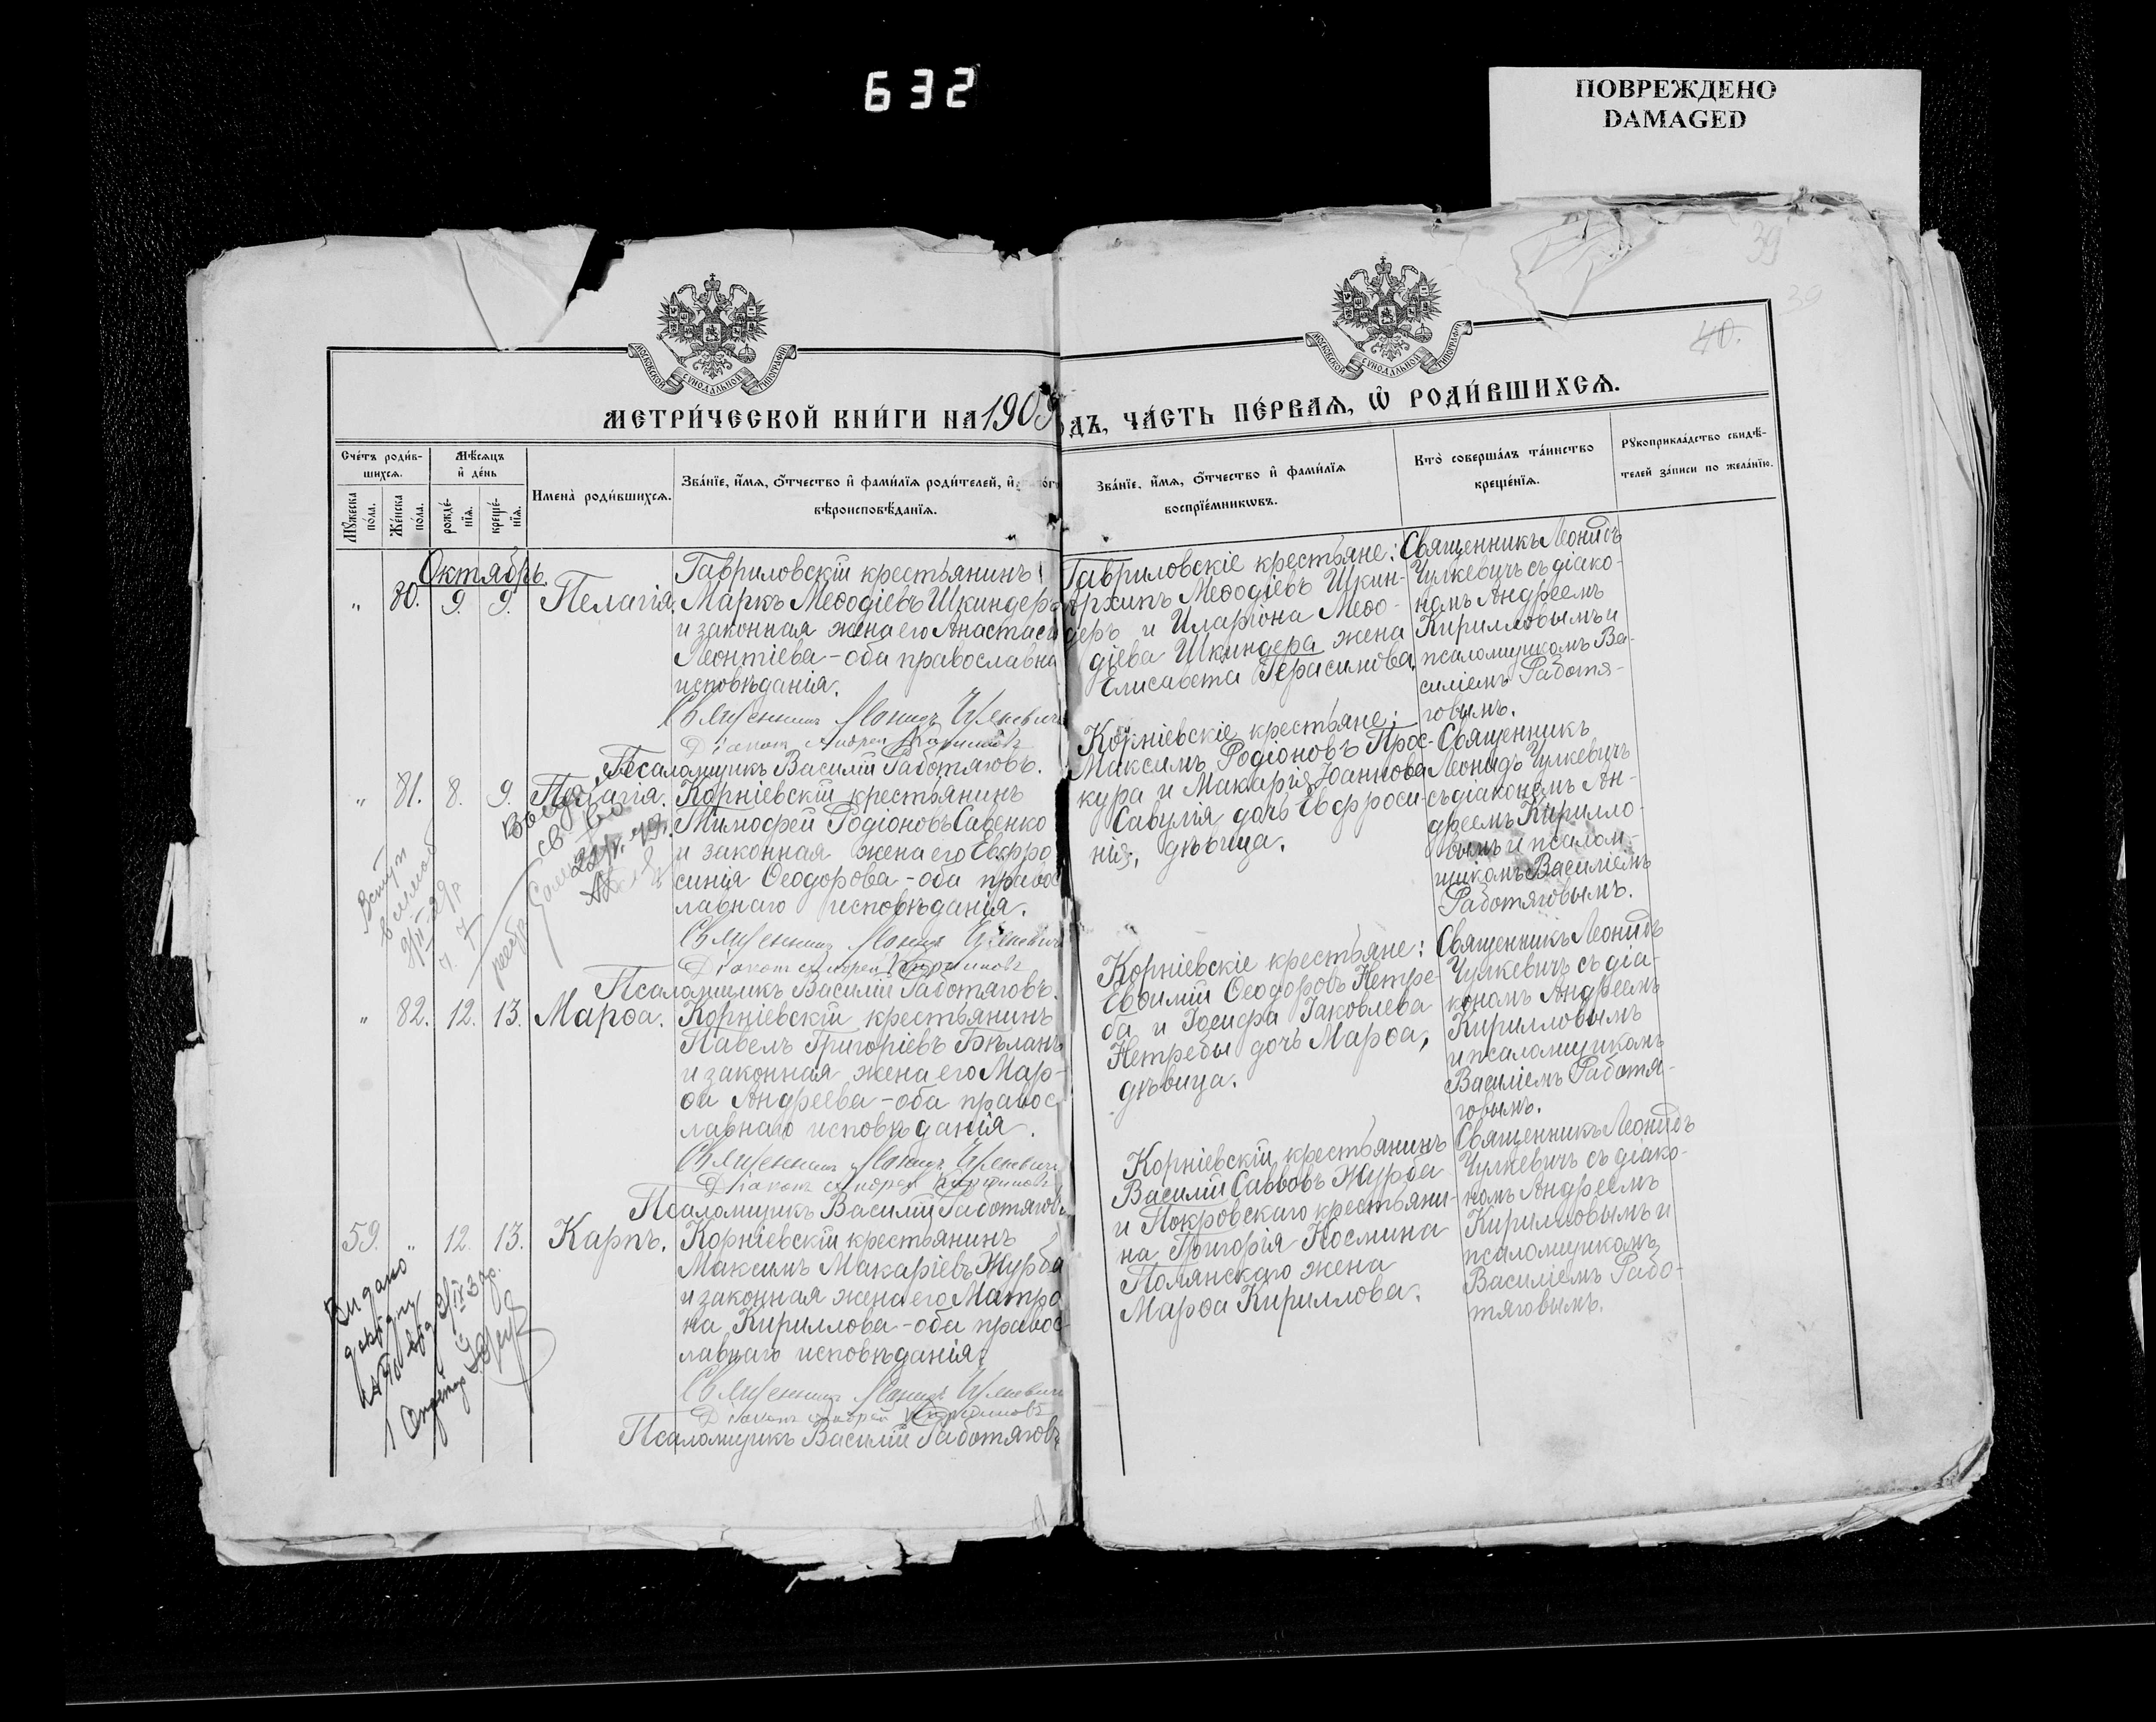 632
ПОВРЕЖДЕНО
DAMAGED
39
39
40.
МОСКОВСКОЙ СѴНОДАЛЬНОЙ ТИПОГРАФІИ
МОСКОВСКОЙ СѴНОДАЛЬНОЙ ТИПОГРАФІИ
МЕТРИ́ЧЕСКОЙ КНИ́ГИ НА 1909
ДЪ, ЧА́СТЬ ПЕ́РВАѦ, Ѡ РОДИ́ВШИХСѦ.
Сче́тъ роди́в-
шихсѧ.
Мꙋжеска
по́ла.
Же́нска
пола.
Мѣ́сѧцъ
и҆ де́нь
рожде́-
нїѧ.
креще́-
нїѧ.
Имена̀ роди́вшихсѧ.
Зва́нїе, и҆́мѧ, ѻ҆́тчество и҆ фами́лїѧ роди́телей, и҆
вѣроисповѣ́данїѧ.
Зва́нїе, и҆́мѧ, ѻ҆́тчество и҆ фами́лїѧ
воспрїе́мникѡвъ.
Кто̀ соверша́лъ та́инство
креще́нїѧ.
Рꙋкоприкла́дство свидѣ́-
телей за́писи по жела́нїю.
Октябрь
" 80. 9. 9. Пелагія.
Гавриловскій крестьянинъ
Маркъ Меѳодіевъ Шкиндеръ
и законная жена его Анастасія
Леонтіева - оба православна
исповѣданія.
Священникъ Леонидъ Чулкевичъ
Діаконъ Андрей Кирилловъ
Псаломщикъ Василій Работяговъ.
Гавриловскіе крестьяне:
Архипъ Меѳодіевъ Шкин-
деръ и Иларіона Меѳо-
діева Шкиндера жена
Елисавета Герасимова.
Священникъ Леонидъ
Чулкевичъ съ діако-
номъ Андреемъ
Кирилловымъ и
псаломщикомъ Ва-
силіемъ Работя-
говымъ.
" 81. 8. 9. Пелагія.
Корніевскій крестьянинъ
Тимофей Родіоновъ Савенко
и законная жена его Евфро
синія Ѳеодорова - оба правос
лавнаго исповѣданія.
Священникъ Леонидъ Чулкевичъ
Діаконъ Андрей Кирилловъ
Псаломщикъ Василій Работяговъ.
Корніевскіе крестьяне:
Максимъ Родіоновъ Прос-
кура и Макарія Іоаннова
Савулія дочь Евфроси-
нія, дѣвица.
Священникъ
Леонидъ Чулкевичъ
съ діакономъ Ан-
дреемъ Кирилло-
вымъ и псалом-
щикомъ Василіемъ
Работяговымъ.
" 82. 12. 13. Марѳа.
Корніевскій крестьянинъ
Павелъ Григоріевъ Бѣланъ
и законная жена его Мар-
ѳа Андреева - оба правос
лавнаго исповѣданія.
Священникъ Леонидъ Чулкевичъ
Діаконъ Андрей Кирилловъ
Псаломщикъ Василій Работяговъ
Корніевскіе крестьяне:
Евѳимій Ѳеодоровъ Нетре-
ба и Іосифа Іаковлева
Нетребы дочь Марѳа,
дѣвица.
Священникъ Леонидъ
Чулкевичъ съ діа-
кономъ Андреемъ
Кирилловымъ
и псаломщикомъ
Василіемъ Работя-
говымъ.
59. " 12. 13. Карпъ.
Корніевскій крестьянинъ
Максимъ Макаріевъ Журба
и законная жена его Матро
на Кириллова - оба правос-
лавнаго исповѣданія.
Священникъ Леонидъ Чулкевичъ
Діаконъ Андрей Кирилловъ
Псаломщикъ Василій Работяговъ
Корніевскій крестьянинъ
Василій Саввовъ Журба
и Покровскаго крестьяни-
на Григорія Космина
Полянскаго жена
Марѳа Кириллова.
Священникъ Леонидъ
Чулкевичъ съ діако-
номъ Андреемъ
Кирилловымъ и
псаломщикомъ
Василіемъ Рабо-
тяговымъ.
Видано